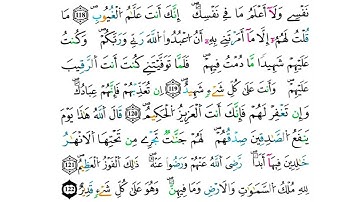 نَفْسِے وَلَآ أَعْلَمُ مَا فِے نَفْسِكَۖ إِنَّكَ أَنتَ عَلَّٰمُ اُ۬لْغُيُوبِۖ ١١٨ مَا
قُلْتُ لَهُمُۥٓ إِلَّا مَآ أَمَرْتَنِے بِهِۦٓ أَنُ اُ۟عْبُدُواْ اُ۬للَّهَ رَبِّے وَرَبَّكُمْۖ وَكُنتُ
عَلَيْهِمْ شَهِيداٗ مَّا دُمْتُ فِيهِمْۖ فَلَمَّا تَوَفَّيْتَنِے كُنتَ أَنتَ اَ۬لرَّقِيبَ
عَلَيْهِمْۖ وَأَنتَ عَلَىٰ كُلِّ شَےْءٖ شَهِيدٌۖ ١١٩ إِن تُعَذِّبْهُمْ فَإِنَّهُمْ عِبَادُكَۖ
وَإِن تَغْفِرْ لَهُمْ فَإِنَّكَ أَنتَ اَ۬لْعَزِيزُ اُ۬لْحَكِيمُۖ ١٢٠ قَالَ اَ۬للَّهُ هَٰذَا يَوْمَ
يَنفَعُ اُ۬لصَّٰدِقِينَ صِدْقُهُمْۖ لَهُمْ جَنَّٰتٞ تَجْرِے مِن تَحْتِهَا اَ۬لْأَنْهَٰرُ
خَٰلِدِينَ فِيهَآ أَبَداٗۖ رَّضِيَ اَ۬للَّهُ عَنْهُمْ وَرَضُواْ عَنْهُۖ ذَٰلِكَ اَ۬لْفَوْزُ اُ۬لْعَظِيمُۖ ١٢١
لِلهِ مُلْكُ اُ۬لسَّمَٰوَٰتِ وَالْأَرْضِ وَمَا فِيهِنَّۖ وَهُوَ عَلَىٰ كُلِّ شَےْءٖ قَدِيرٌۖ ١٢٢